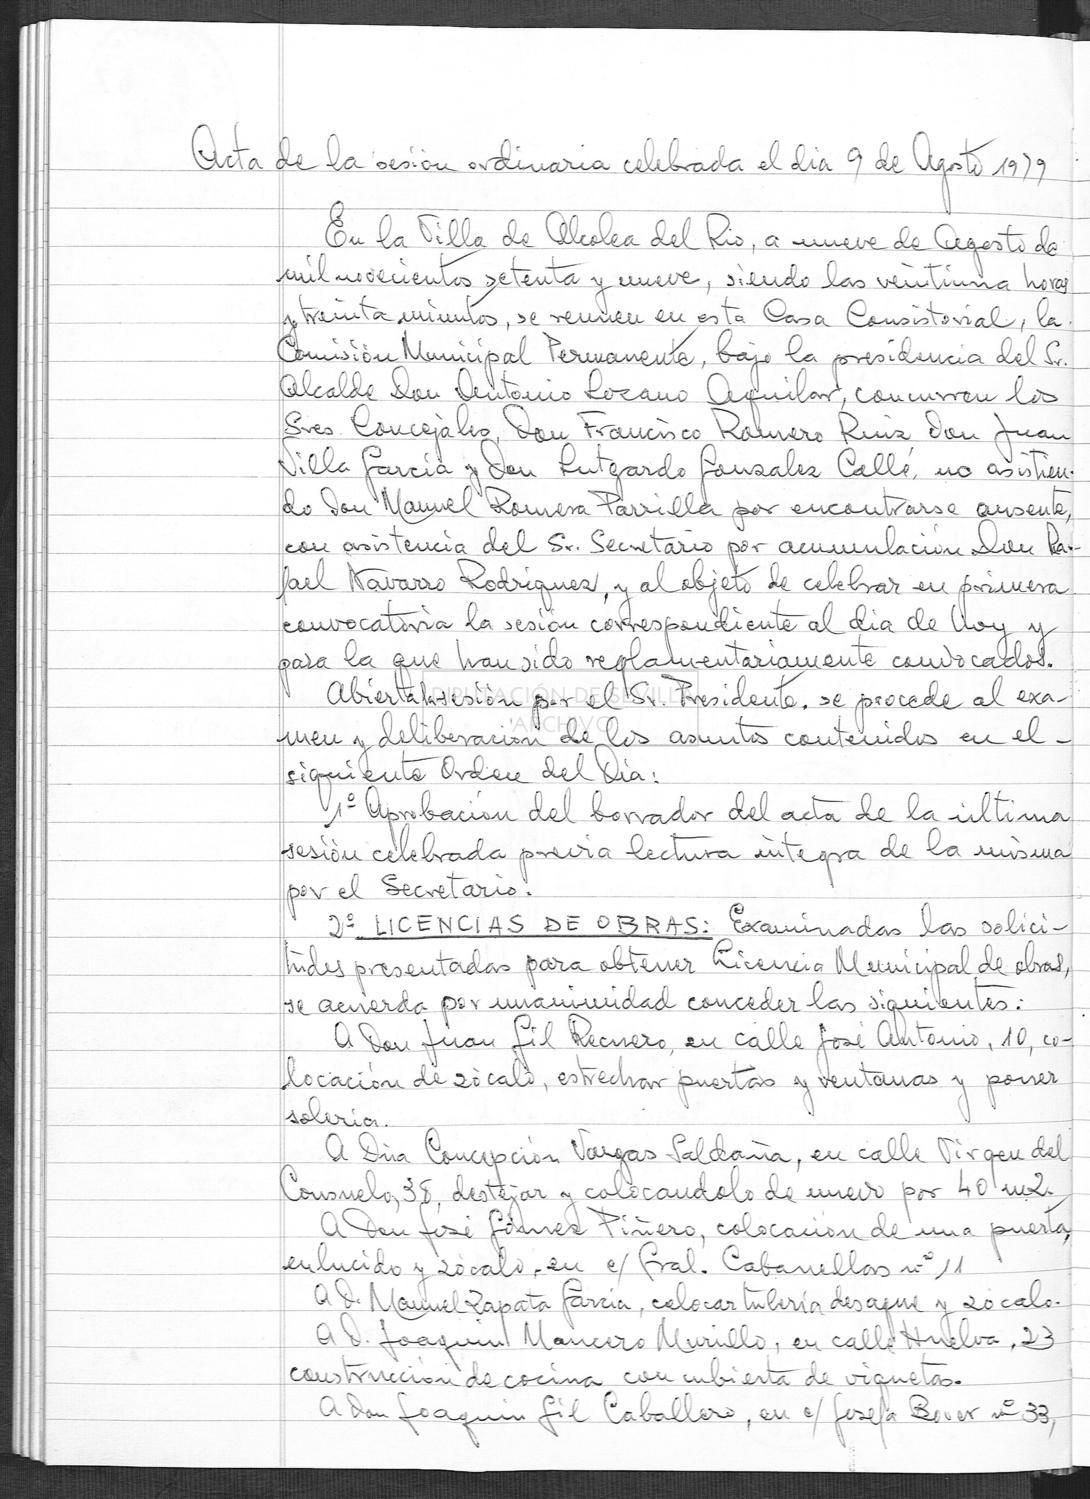 Acta de la sesión ordinaria celebrada el dia 9 de Agosto 1979
En la Villa de Alcolea del Rio, a nueve de Agosto de
mil novecientos setenta y nueve, siendo las veintiuna horas
y treinta minutos, se reunen en esta Casa Consistorial, la
Comisión Municipal Permanente, bajo la presidencia del Sr.
Alcalde Don Antonio Lozano Aguilar, concurren los
Sres. Concejales, Don Francisco Romero Ruiz Don Juan
Villa García y Don Lutgardo Gonzalez Collé, no asistien-
do Don Manuel Romera Parrilla por encontrarse ausente,
con asistencia del Sr. Secretario por acumulación Don Ra-
fael Navarro Rodríguez, y al objeto de celebrar en primera
convocatoria la sesión correspondiente al dia de hoy y
para la que han sido reglamentariamente convocados.
Abierta la sesión por el Sr. Presidente, se procede al exa-
DIPUTACIÓN DE SEVILLA
ARCHIVO
men y deliberación de los asuntos contenidos en el -
siguiente Orden del Dia:
1º Aprobación del borrador del acta de la última
sesión celebrada previa lectura integra de la misma
por el Secretario.
2º LICENCIAS DE OBRAS: Examinadas las solici-
tudes presentadas para obtener Licencia Municipal de obras,
se acuerda por unanimidad conceder las siguientes:
A Don Juan Gil Recuero, en calle José Antonio, 10, co-
locación de zócalo, estrechar puertas y ventanas y poner
soleria.
A Dña Concepción Vargas Saldaña, en calle Virgen del
Consuelo, 38, destejar y colocandolo de nuevo por 40 m2.
A Don José Gómez Piñero, colocación de una puerta,
enlucido y zócalo, en c/ Gral. Cabanellas nº 11
A D. Manuel Zapata García, colocar tubería desague y zócalo.
A D. Joaquin Mancero Murillo, en calle Huelva, 23
construcción de cocina con cubierta de viguetas.
A Don Joaquin Gil Caballero, en c/ Josefa Bover nº 33,